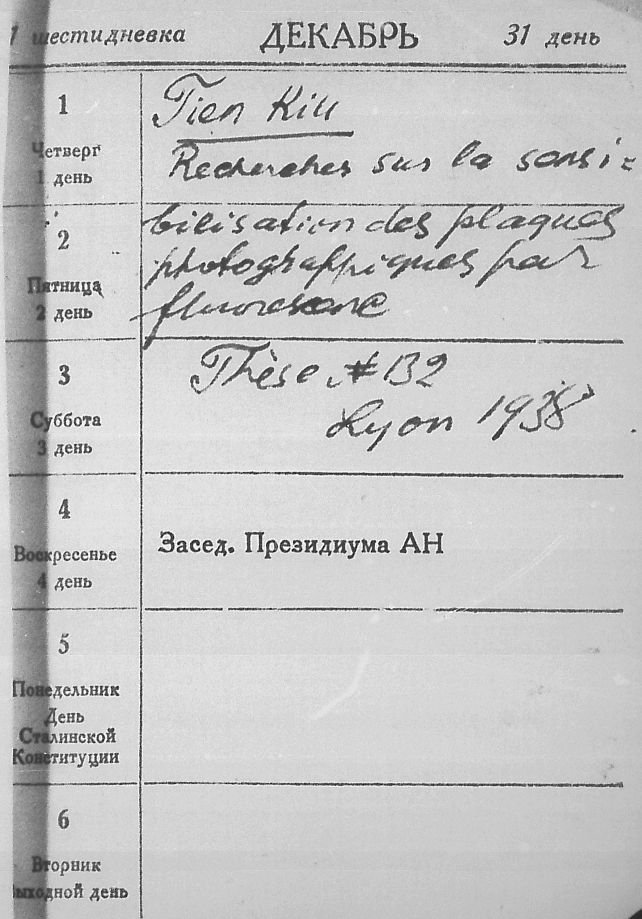 1 шестидневка ДЕКАБРЬ 31 день
1
Четверг
1 день
Tien Kiu
Recherches sur la sensi=
2
Пятница
2 день
bilisation des plaques
photographiques par
fluorescence
3
Суббота
3 день
Thèse № 132
Lyon 1938
4
Воскресенье
4 день
Засед. Президиума АН
5
Понедельник
День
Сталинской
Конституции
6
Вторник
Выходной день